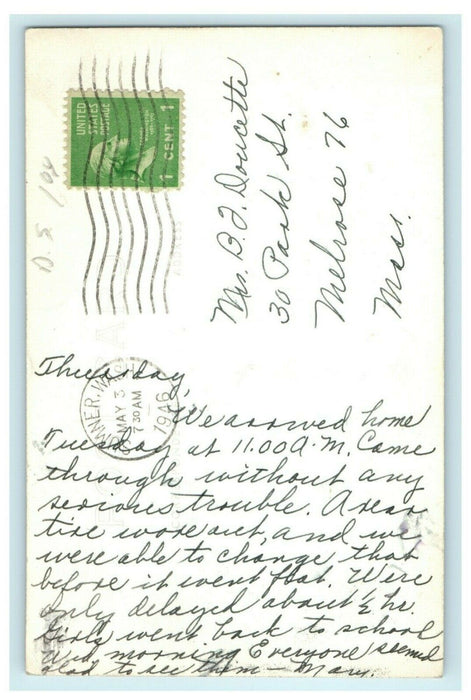 UNITED
STATES
POSTAGE
1 CENT 1
Mrs. B. J. Doucette
30 Park St.
Melrose 76
Mass.
MAY 3
7 30 AM
1946
Thursday,
We arrived home
Tuesday at 11.00 A.M. Came
through without any
serious trouble. A rear
tire wore out, and we
were able to change that
before it went flat. Were
only delayed about ½ hr.
Girls went back to school
Wed morning Everyone seemed
glad to see them — Mary.